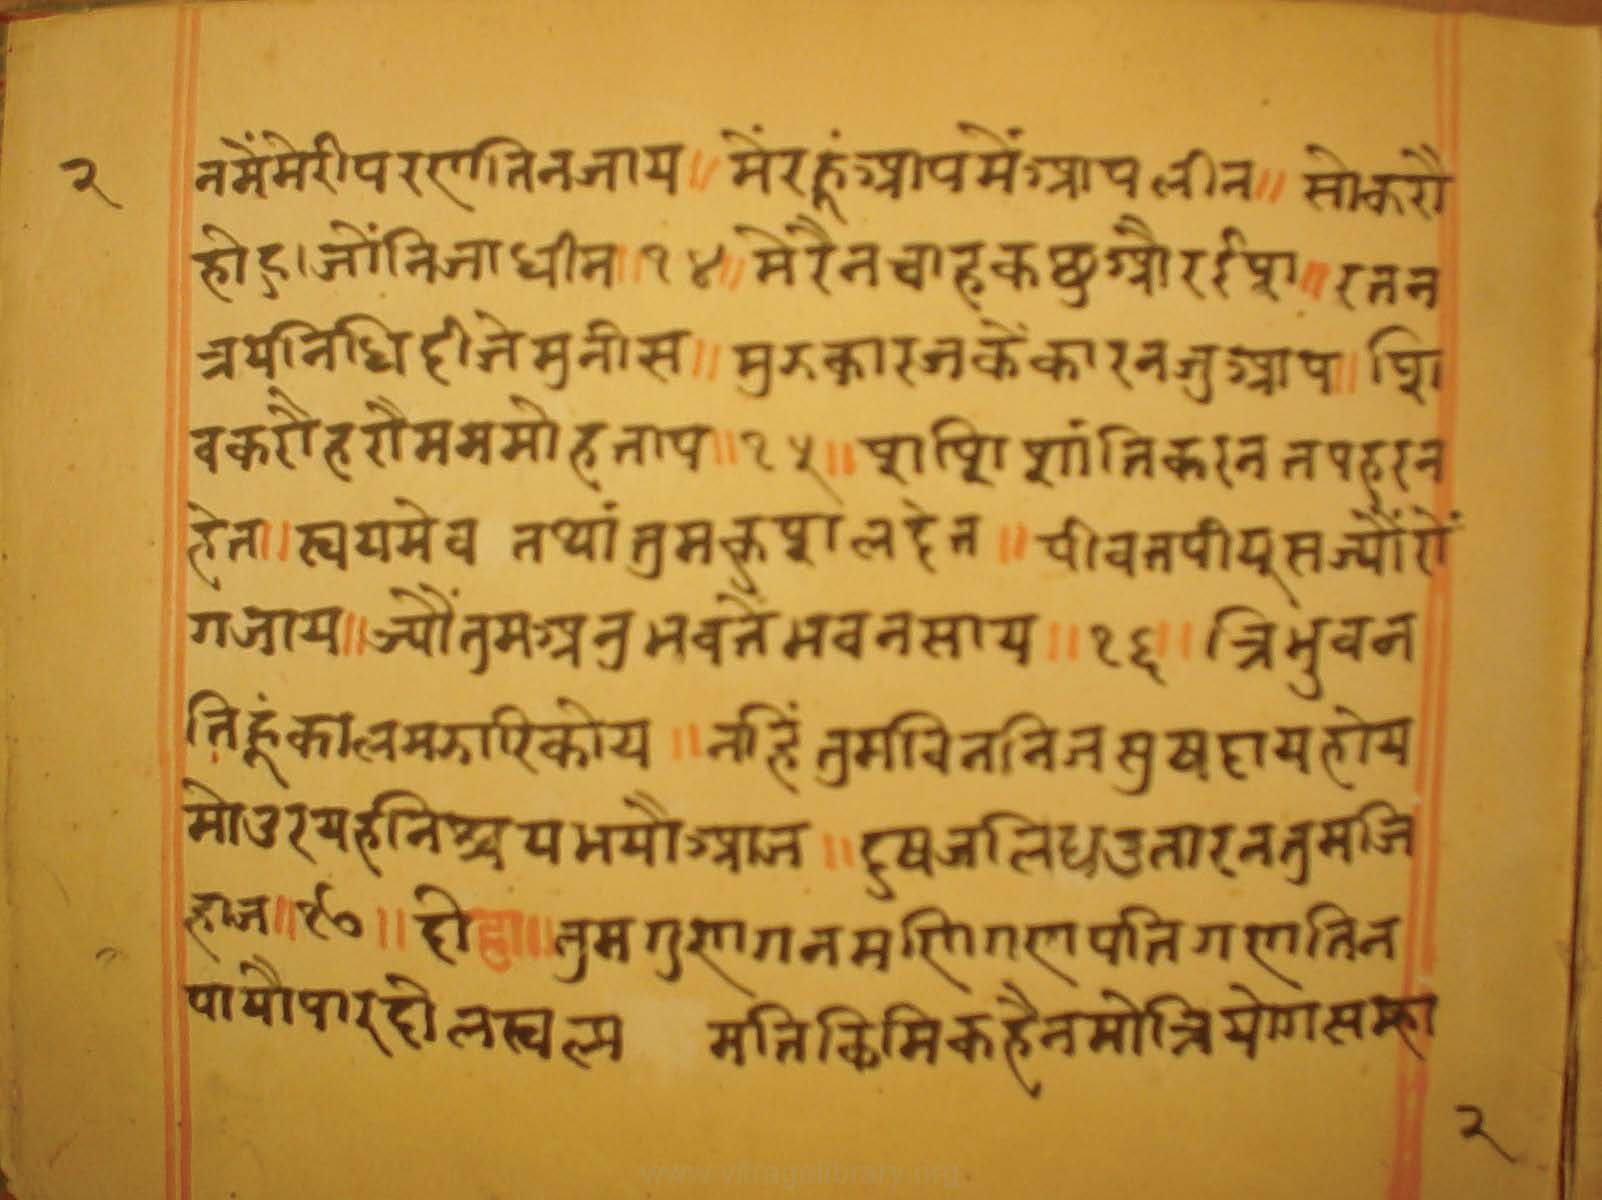 २
नमेंमेरीपरणतिनजाय॥ मेंरहूंआपमेंआपलीन॥ सोकरौ
होहु।जोंनिजाधीन॥१४॥मेरैनचाहकछुऔरईश॥रतन
त्रयनिधिदीजेमुनीस॥मुझकारजकेंकारनजुआप॥शि
वकरौहरौमममोहताप॥१५॥शशिशांतिकरनतपहरन
हेत॥स्वयमेव तथांतुमकुशलदेत॥पीवतपीयूसज्यौंरो
गजाय॥ज्यौंतुमअनुभवतैंभवनसाय॥१६॥त्रिभुवन
तिहूंकालमझारिकोय॥नहिंतुमविननिजसुषदायहोय
मोउरयहनिश्चयभयौआज॥दुषजलिधउतारनतुमजि
हाज॥१७॥दोहा॥तुमगुणगनमणिगणपतिगणतिन
पायौपारदोलस्वल्प मतिकिमिकहैनमोत्रियोगसम्हा
२
www.vitragelibrary.org